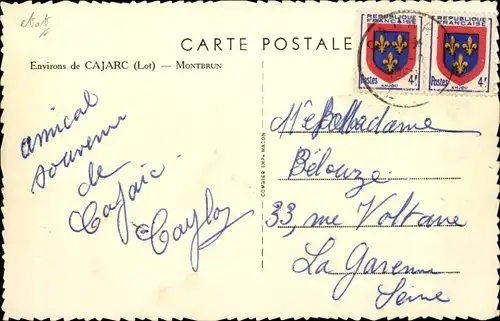 etat
CARTE POSTALE
REPUBLIQUE FRANÇAISE
Postes 4F
ANJOU
REPUBLIQUE FRANÇAISE
Postes 4F
ANJOU
Environs de CAJARC (Lot) — MONTBRUN
amical
souvenir
de
Cajarc
COMBIER IMP. MACON
Madame
Bélouze
33, rue Voltaire
La Garenne
Seine